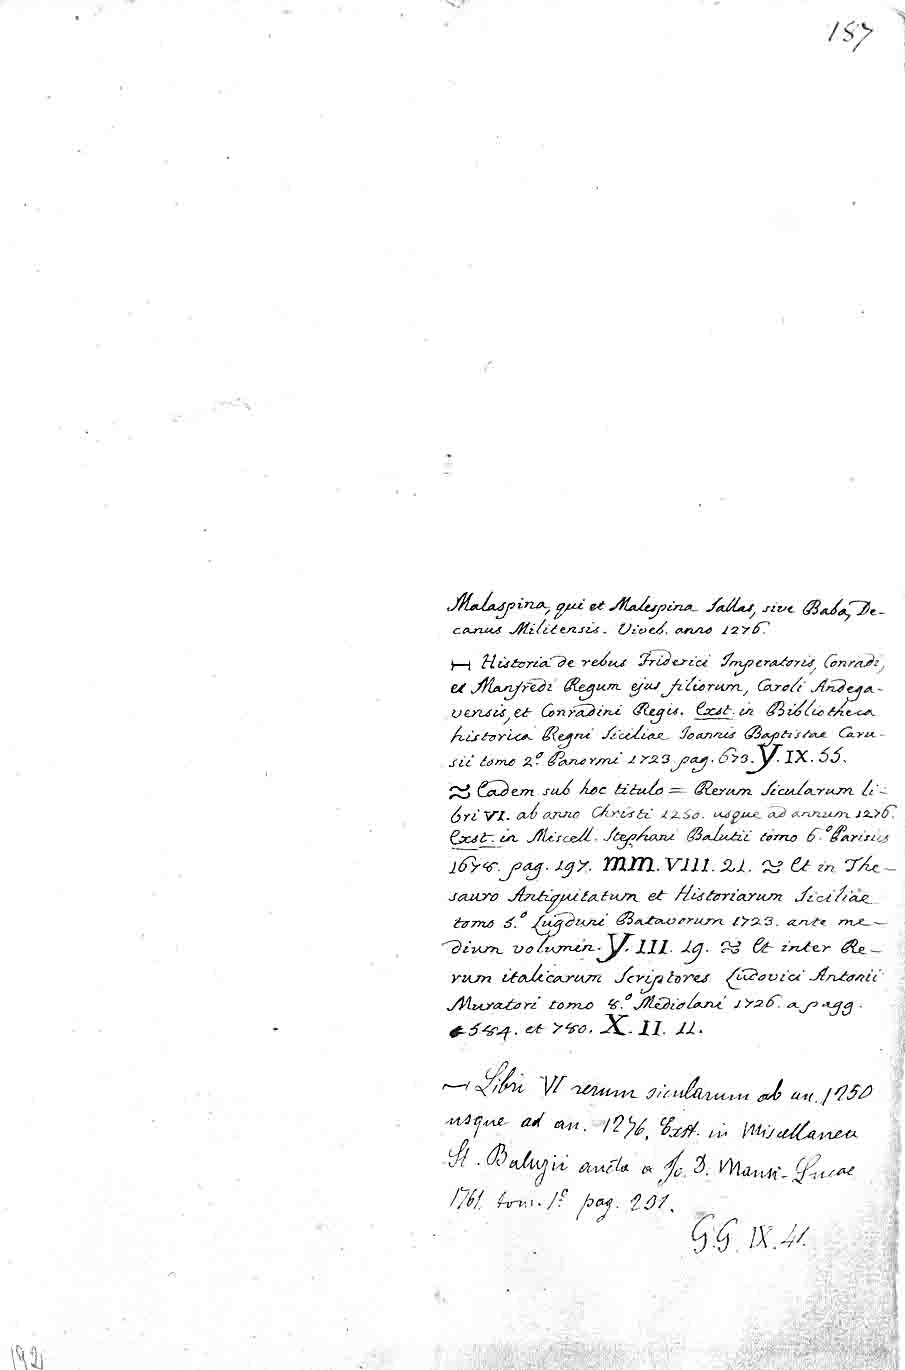 187
Malaspina, qui et Malespina Sallas, sive Saba, De-
canus Militensis. Viveb. anno 1276.
Historia de rebus Friderici Imperatoris, Conradi,
et Manfredi Regum ejus filiorum, Caroli Andega-
vensis, et Conradini Regis. Exst. in Bibliotheca
historica Regni Siciliae Ioannis Baptistae Caru-
sii tomo 2.° Panormi 1723 pag. 673. Y. IX. 55.
≈ Eadem sub hoc titulo = Rerum Sicularum li-
bri VI. ab anno Christi 1250. usque ad annum 1276.
Exst. in Miscell. Stephani Balutii tomo 6.° Parisiis
1678. pag. 197. mm. VIII. 21. ≈ Et in The-
sauro Antiquitatum et Historiarum Siciliae
tomo 5.° Lugduni Batavorum 1723. ante me-
dium volumin. Y. III. 19. ≈ Et inter Re-
rum italicarum Scriptores Ludovici Antonii
Muratori tomo 8.° Mediolani 1726. a pagg.
584. et 780. X. II. 11.
Libri VI rerum sicularum ab an. 1250
usque ad an. 1276. Exst. in Miscellanea
St. Baluzii aucta a Jo. D. Mansi - Lucae
1761. tom. 1.° pag. 291.
G.G. IX. 41.
192